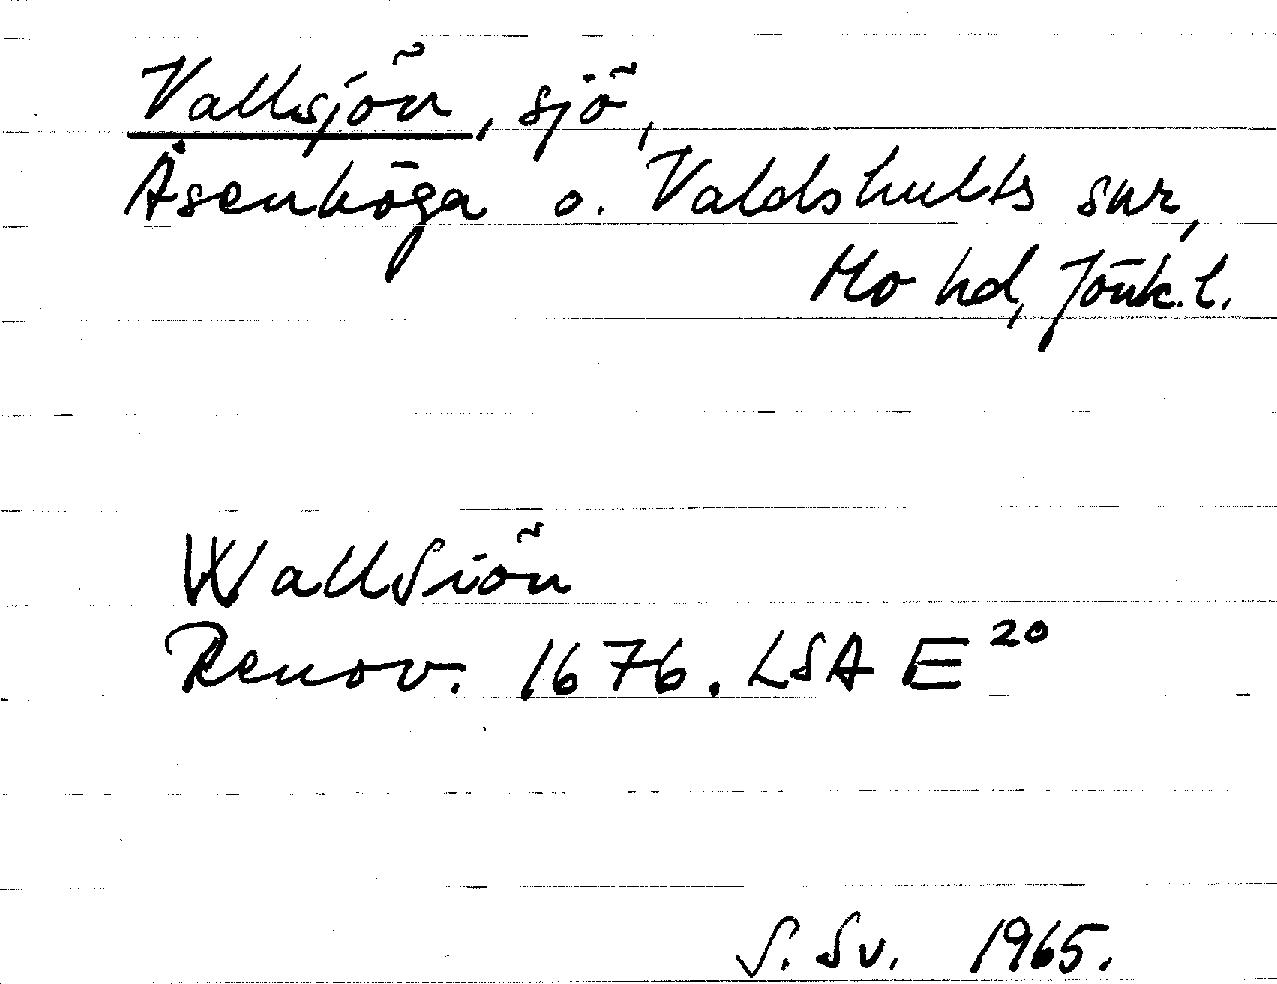 Vallsjön, sjö,
Åsenhöga o. Valdshults snr,
Mo hd, Jönk. l.
WallSiön
Renov. 1676. LSA E 20
S. Sv. 1965.